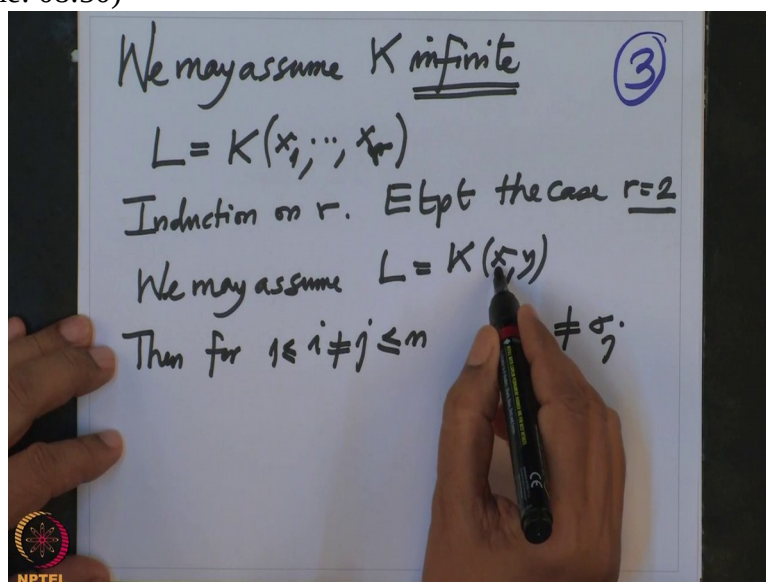 We may assume K infinite
3
L = K(x₁, ..., xᵣ)
Induction on r. Etpt the case r=2
We may assume L = K(x, y)
Then for 1≤ i≠j ≤n ≠ σⱼ
CE
NPTEL